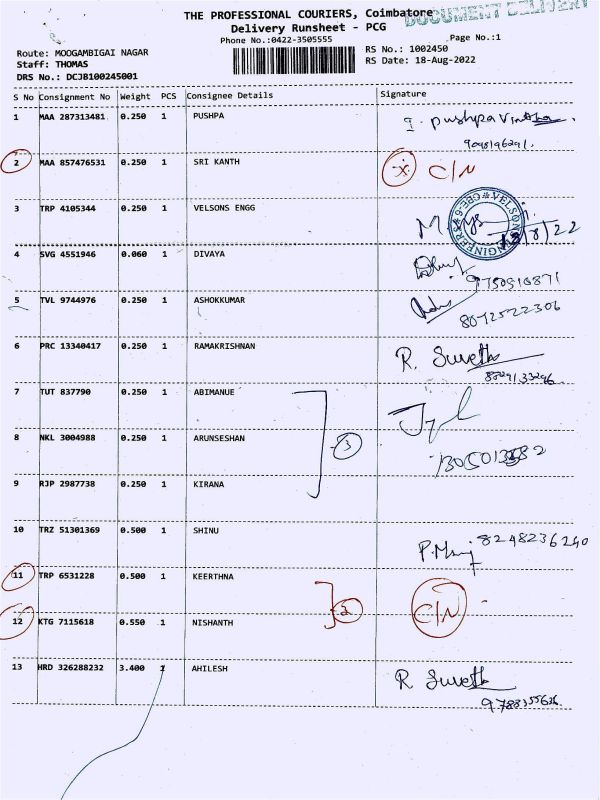 THE PROFESSIONAL COURIERS, Coimbatore
DOCUMENT DELIVERY
Delivery Runsheet - PCG
Phone No.:0422-3505555
Page No.:1
Route: MOOGAMBIGAI NAGAR
RS No.: 1002450
Staff: THOMAS
RS Date: 18-Aug-2022
DRS No.: DCJB100245001
S No Consignment No Weight PCS Consignee Details Signature
1 MAA 287313481 0.250 1 PUSHPA
2 MAA 857476531 0.250 1 SRI KANTH C/N
3 TRP 4105344 0.250 1 VELSONS ENGG
18/8/22
4 SVG 4551946 0.060 1 DIVAYA
5 TVL 9744976 0.250 1 ASHOKKUMAR
8072522306
6 PRC 13340417 0.250 1 RAMAKRISHNAN R. Suvetha
7 TUT 837790 0.250 1 ABIMANUE
8 NKL 3004988 0.250 1 ARUNSESHAN
3
9 RJP 2987738 0.250 1 KIRANA
10 TRZ 51301369 0.500 1 SHINU
8248236240
11 TRP 6531228 0.500 1 KEERTHNA
2 C/N
12 KTG 7115618 0.550 1 NISHANTH
13 HRD 326288232 3.400 1 AHILESH R Suvetha